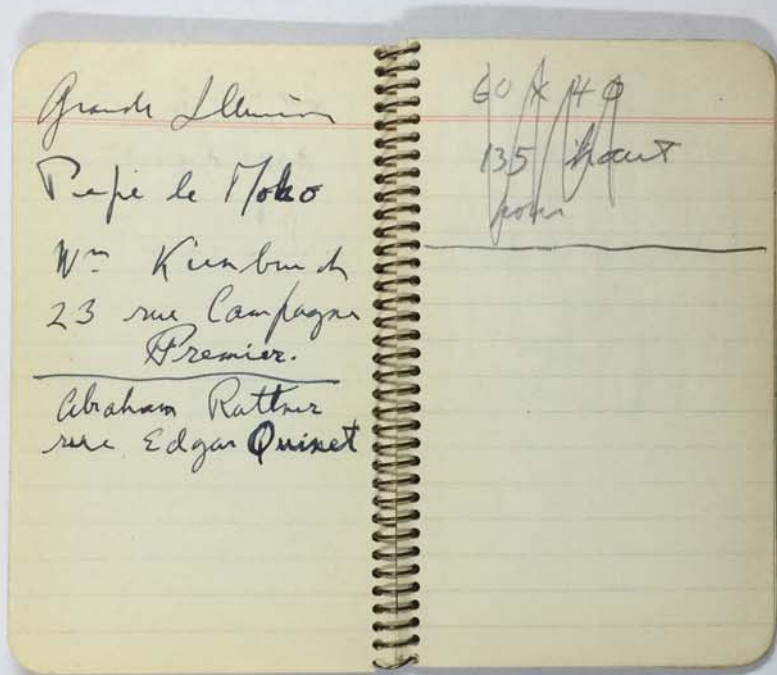 Grande Illusion
Pepe le Moko
Wm Kienbusch
23 rue Campagne
Premier.
Abraham Rattner
rue Edgar Quinet
60 x 40
135 haut
pour